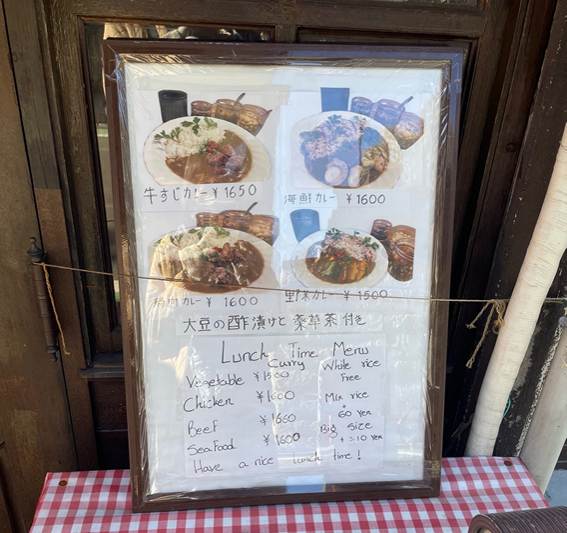 牛すじカレー ¥1650
海鮮カレー ¥1600
カレー ¥ 1600
野菜カレー ¥1500
大豆の酢漬けと 薬草茶 付き
Lunch Time Menu
Curry White rice
Vegetable ¥1500 Free
Chicken ¥1600 Mix rice
+ 60 Yen
Beef ¥1660 Big Size
Sea Food ¥1600 + 310 Yen
Have a nice lunch time!